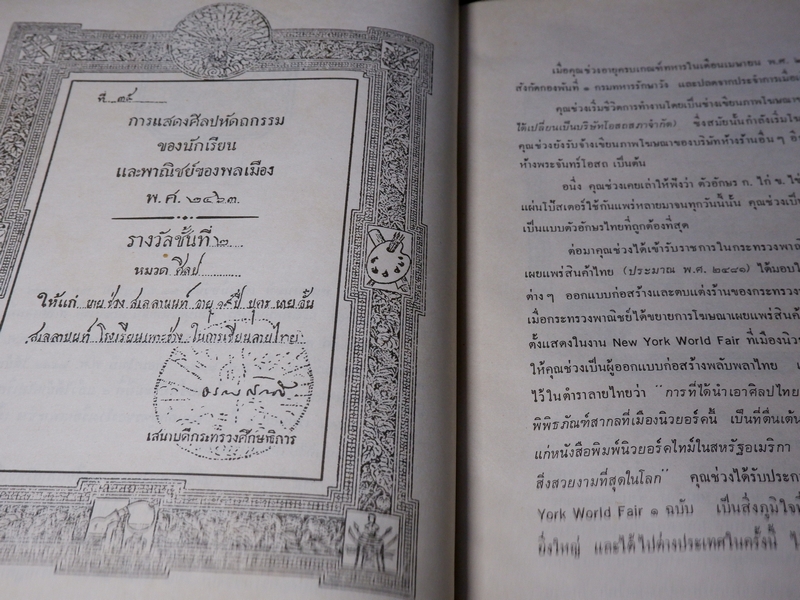 ที่ ๓๕
การแสดงศิลปหัตถกรรม
ของนักเรียน
และพาณิชย์ของพลเมือง
พ.ศ. ๒๔๖๓
รางวัลชั้นที่ ๒
หมวด ศิลป
ให้แก่ นาย ช่วง สเลลานนท์ อายุ ๑๙ ปี บุตร นาย จั่น
สเลลานนท์ โรงเรียนเพาะช่าง ในการเขียนลายไทย
เสนาบดีกระทรวงศึกษาธิการ
เมื่อคุณช่วงอายุครบเกณฑ์ทหารในเดือนเมษายน พ.ศ. ๒
สังกัดกองพันที่ ๑ กรมทหารรักษาวัง และปลดจากประจำการเมื่อ
คุณช่วงเริ่มชีวิตการทำงานโดยเป็นช่างเขียนภาพโฆษณา
ได้เปลี่ยนเป็นบริษัทโอสถสภาจำกัด) ซึ่งสมัยนั้นกำลังเริ่ม
คุณช่วงยังรับจ้างเขียนภาพโฆษณาของบริษัทห้างร้านอื่น ๆ
ห้างพระจันทร์โอสถ เป็นต้น
อนึ่ง คุณช่วงเคยเล่าให้ฟังว่า ตัวอักษร ก. ไก่ ข. ไข่
แผ่นโป๊สเตอร์ใช้กันแพร่หลายมาจนทุกวันนี้นั้น คุณช่วง
เป็นแบบตัวอักษรไทยที่ถูกต้องที่สุด
ต่อมาคุณช่วงได้เข้ารับราชการในกระทรวง
เผยแพร่สินค้าไทย (ประมาณ พ.ศ. ๒๔๘๑) ได้มอบ
ต่าง ๆ ออกแบบก่อสร้างและตบแต่งร้านของกระทรวง
เมื่อกระทรวงพาณิชย์ได้ขยายการโฆษณาเผยแพร่สินค้า
ตั้งแสดงในงาน New York World Fair ที่เมือง
ให้คุณช่วงเป็นผู้ออกแบบก่อสร้างพลับพลาไทย
ไว้ในตำราลายไทยว่า "การที่ได้นำเอาศิลปไทย
พิพิธภัณฑ์สากลที่เมืองนิวยอร์คนี้ เป็นที่ตื่นเต้น
แก่หนังสือพิมพ์นิวยอร์คไทม์ในสหรัฐอเมริกา
สิ่งสวยงามที่สุดในโลก" คุณช่วงได้รับ
York World Fair ๑ ฉบับ เป็นสิ่งภูมิใจ
ยิ่งใหญ่ และได้ไปต่างประเทศในครั้งนี้